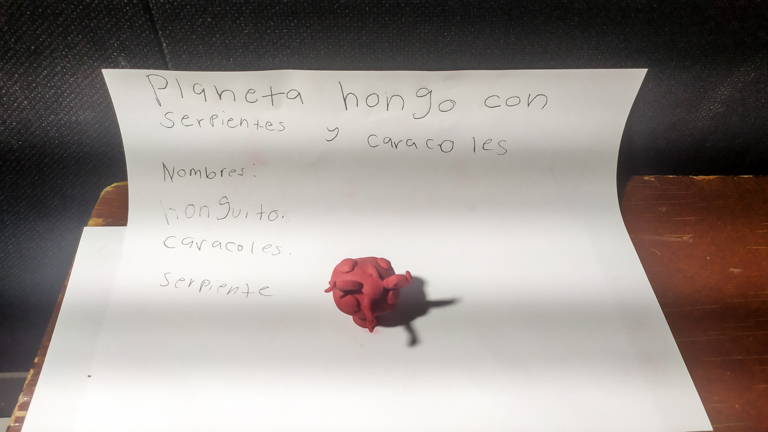 Planeta hongo con
serpientes y caracoles
Nombres:
honguito.
caracoles.
serpiente